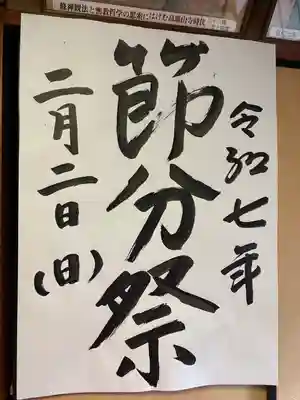 令和七年
節分祭
二月二日(日)